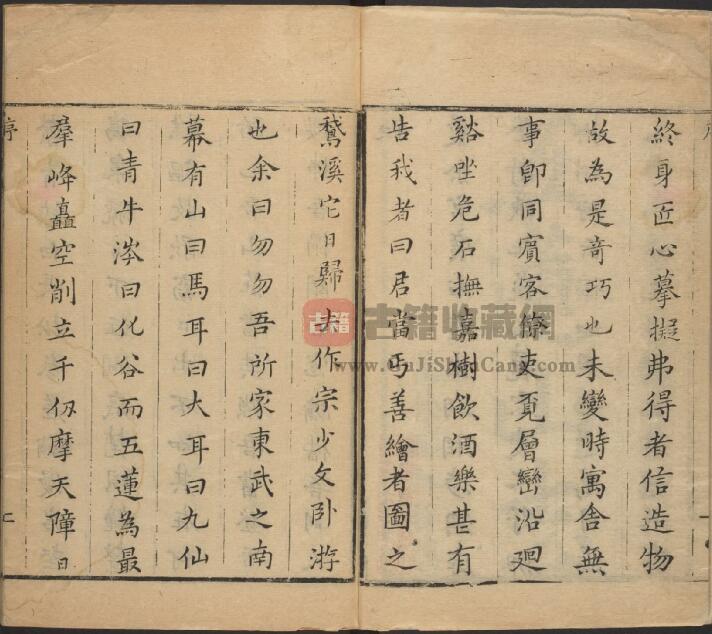 終身匠心摹擬弗得者信造物
故為是奇巧也未變時寓舍無
事卽同賓客僚吏覓層巒沿廻
谿坐危石撫嘉樹飲酒樂甚有
告我者曰君當丐善繪者圖之
鵞溪它日歸去作宗少文卧游
也余曰勿勿吾所家東武之南
幕有山曰馬耳曰大耳曰九仙
曰青牛涔曰化谷而五蓮為最
羣峰矗空削立千仭摩天障日
序
古籍
古籍收藏網
www.GuJiShouCang.com